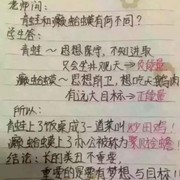 老师问：
青蛙和癞蛤蟆有何不同？
学生答：
青蛙～思想保守，不知进取
又坐井观天→负能量
癞蛤蟆～思想前卫，想吃天鹅肉
有远大目标→正能量
所以：
青蛙上了饭桌成了一道菜叫炒田鸡！
癞蛤蟆上了办公桌称为聚财蛤蟆！
结论：长的美丑不重要，
重要的是要有梦想与目标！